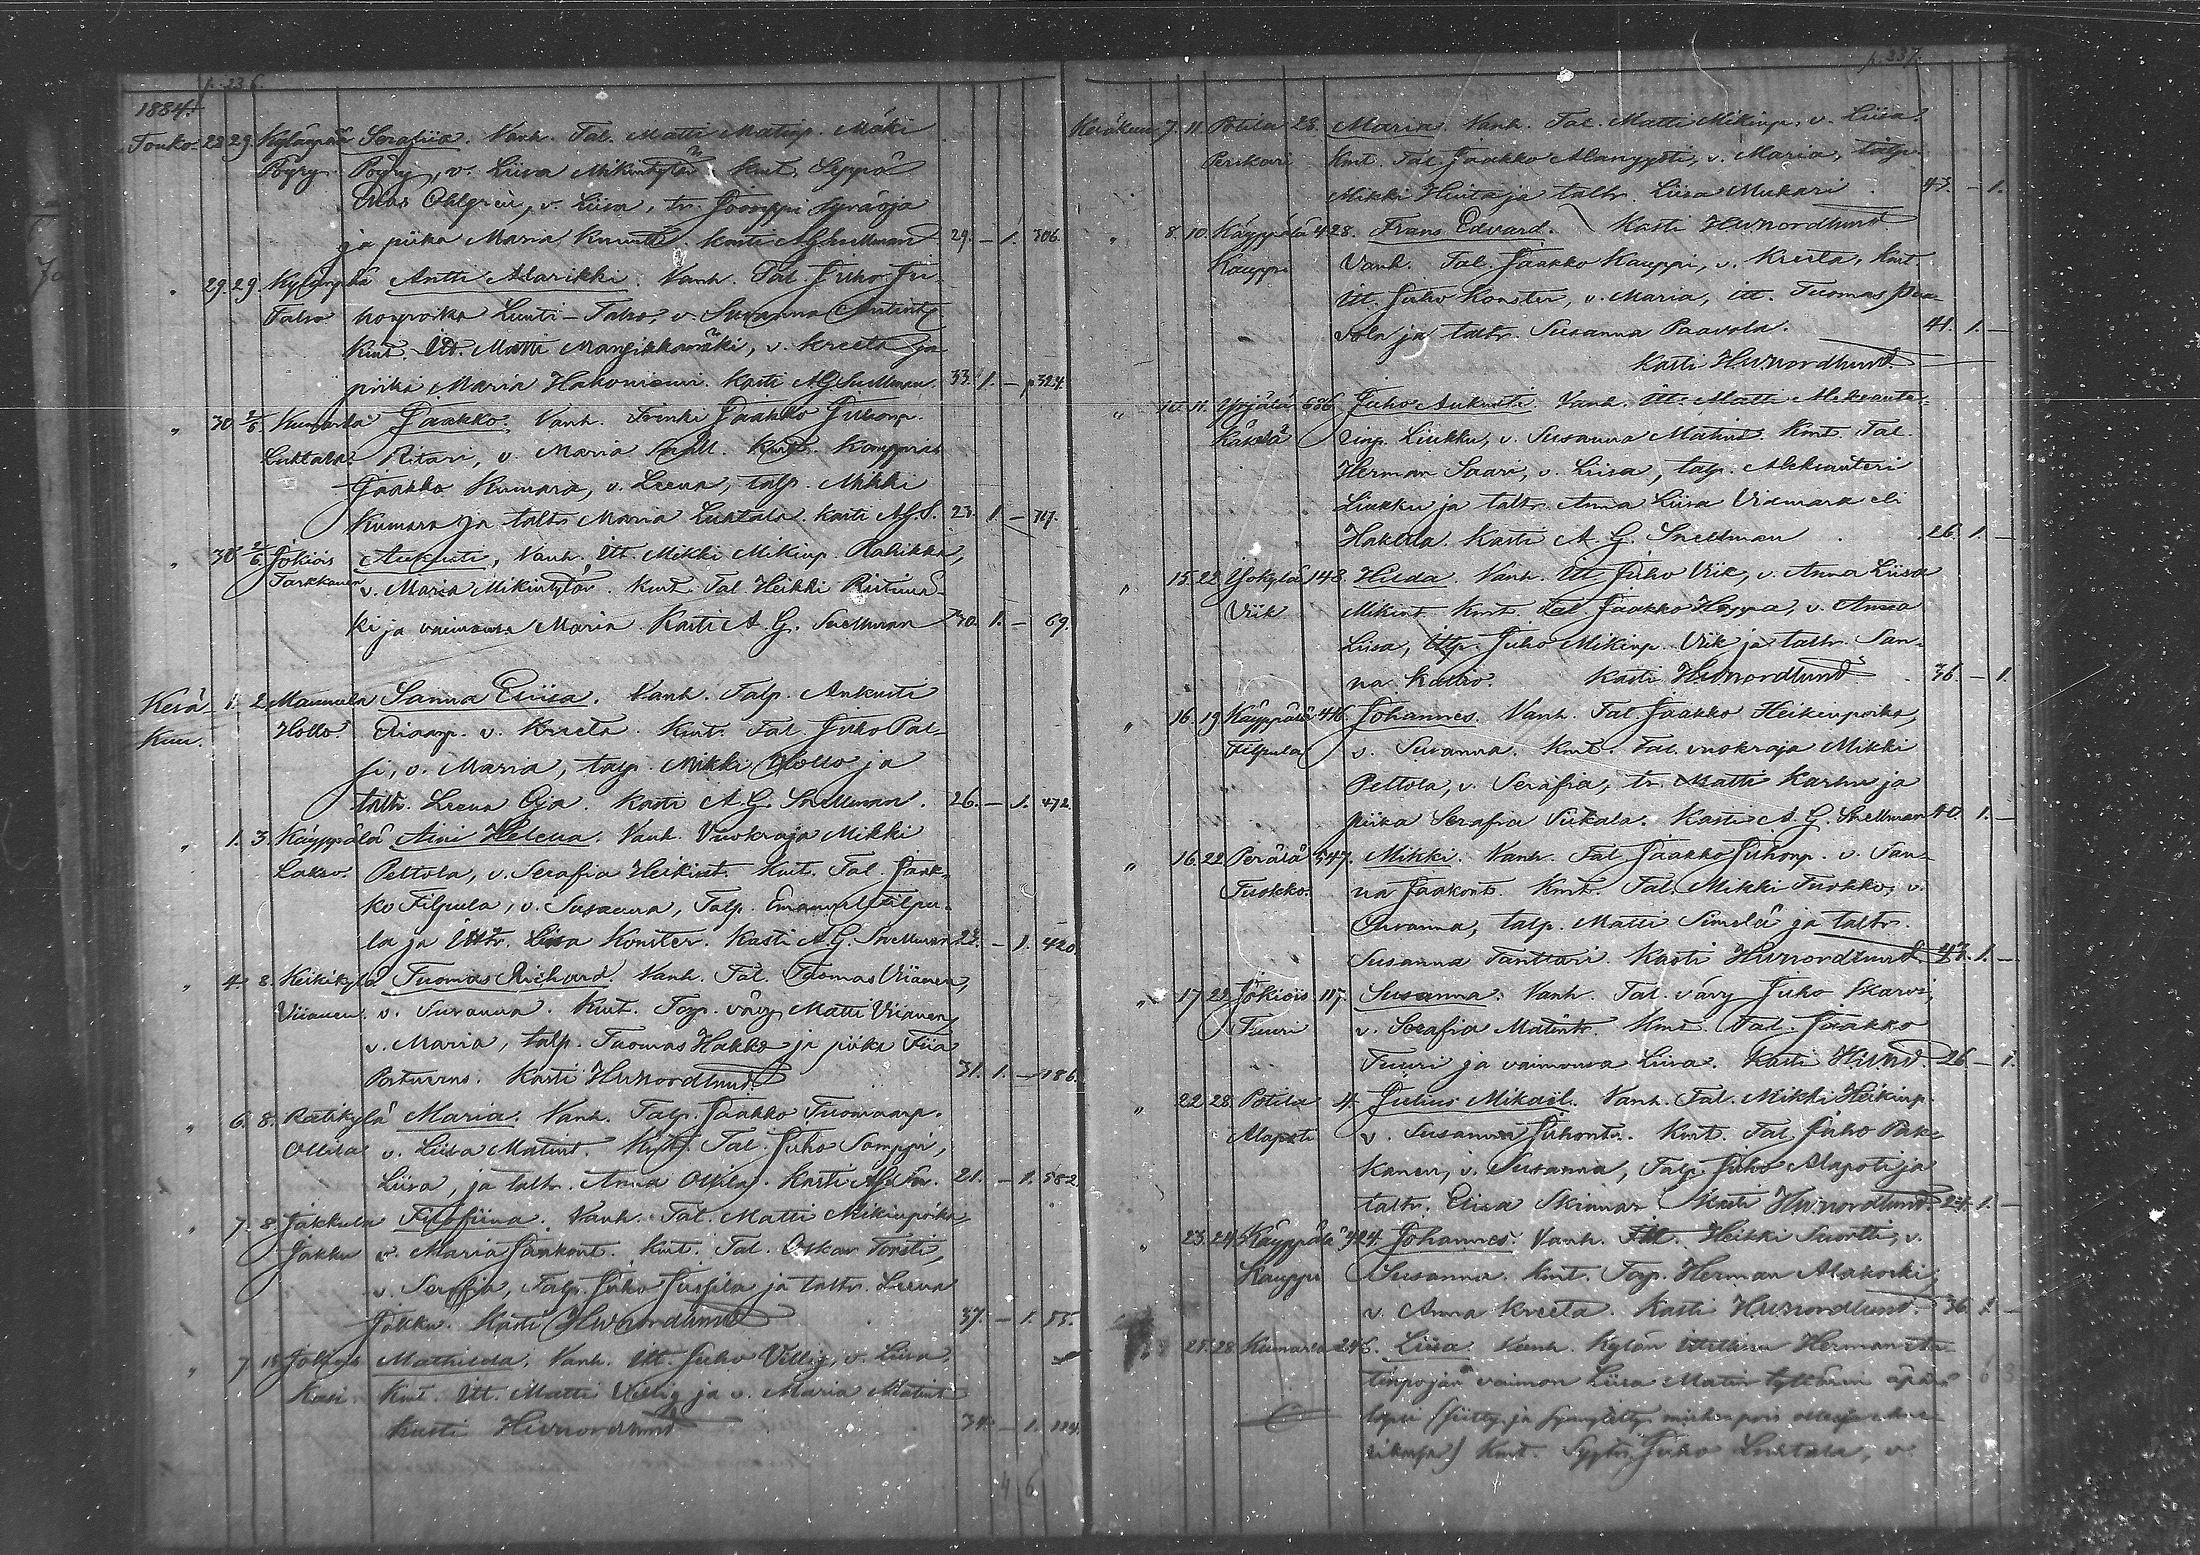 p. 236.
1884.
Touko- 28 29. Kylänpää Serafiia. Vanh. Tal. Matti Matinp. Mäki
Pöyry Pöyry, v. Liisa Mikintytär. Kmt. Seppä
Ohlgren, v. Liisa, tr. Joonppi Kyräoja
ja piika Maria Kasti A G Snellman 29. – 1. 306.
" 29. 29. Kylänpää Antti Alarikki. Vanh. Tal. Juho Ju-
Talso honpoika Luuti-Talso, v. Susanna Antint.
Kmt. Itt. Matti Mansikkamäki, v. Kreeta ja
piika Maria Hakoniemi. Kasti A G Snellman. 33. 1. – 324.
" 30 2/6. Kumarla Jaakko. Vanh. Trenki Jaakko Juhonp.
Luhtala Ritari, v. Maria Kmt. Kauppias
Jaakko Kumara, v. Leena, talp. Mikki
Kumara ja taltr. Maria Luhtala. Kasti A G. S. 23. 1. – 717.
" 30 2/6. Jokiois Aukusti, Vanh. Itt. Mikki Mikinp. Rahikka,
Tarkkanen v. Maria Mikintytär. Kmt. Tal. Heikki Ristimä-
ki ja vaimonsa Maria. Kasti A. G. Snellman 30. 1. – 69.
Kesä- 1. 2. Mannula Sanna Eliisa. Vanh. Talp. Aukusti
kuu. Hollo. v. Kreeta. Kmt. Tal. Juho Pal-
si, v. Maria, talp. Mikki Hollo ja
taltr. Leena Oja. Kasti A G. Snellman. 26. – 1. 472.
" 1. 3. Käyppälä Aini Helena. Vanh. Vuokraaja Mikki
Lakso. Peltola, v. Serafia Heikint. Kmt. Tal. Jaak-
ko Filpula, v. Susanna, Talp. Emanuel Filpu-
la ja Ittr. Liisa Konster. Kasti A G. Snellman 23. – 1. 420.
" 4. 8. Keikikylä Tuomas Richard. Vanh. Tal. Tuomas Viianen,
Viianen. v. Susanna. Kmt. Torp. vävy Matti Viianen,
v. Maria, talp. Tuomas Hakko ja piika Fiia
Kasti HWNordlund 31. 1. – 186.
" 6. 8. Raitikylä Maria. Vanh. Talp. Jaakko Tuomaanp.
Ollila v. Liisa Matint. Kmt. Tal. Juho Samppi,
Liisa, ja taltr. Anna Ollila. Kasti 21. – 1. 582.
" 7. 8. Jakkula Fiiofiina. Vanh. Tal. Matti Mikinpoika,
Jakku v. Maria Jaakont. Kmt. Tal. Oskar Tonsti,
v. Serafia, Talp. Juho Jussila ja taltr. Leena
Jakku. Kasti HWNordlund 37. – 1. 55.
" 7 15 Jokiois Mathilda. Vanh. Itt. Juho Villig, v. Liisa.
Kasi Kmt. Itt. Matti Villig ja v. Maria Matint.
Kasti HWNordlund 34. – 1. 124.
p. 337.
Kesäkuu 7. 11. Potila 23. Maria. Vanh. Tal. Matti Mikinp., v. Liisa.
Perikari Kmt. Tal. Jaakko Alanypöti, v. Maria, talp.
Mikki Hinta ja taltr. Liisa Mukari 43. – 1.
" 8. 10. Käyppälä 428. Frans Edvard. Kasti HWNordlund
Kauppi Vanh. Tal. Jaakko Kauppi, v. Kreeta, Kmt.
Itt. Juho Konster, v. Maria, itt. Tuomas Paa-
vola ja taltr. Susanna Paavola. 41. 1. –
Kasti HWNordlund.
" 10. 11. Ypäjälä 636. Juho Aukusti. Vanh. Itt. Matti Aleksante-
rinp. Liukku, v. Susanna Matint. Kmt. Tal.
Herman Saari, v. Liisa, talp. Aleksanteri
Liukku ja taltr. Anna Liisa Vidmark eli
Hakkila. Kasti A. G. Snellman 26. 1. –
" 15. 22. Yökylä 148. Hilda. Vanh. Itt. Juho Viik, v. Anna Liisa
Viik Mikint. Kmt. Tal. Jaakko Hoppa, v. Anna
Liisa, Juho Mikinp. Viik ja taltr. San-
na Kasti HWNordlund 36. – 1.
" 16. 19 Käyppälä 416. Johannes. Vanh. Tal. Jaakko Heikinpoika,
Filpula v. Susanna. Kmt. Tal. vuokraja Mikki
Peltola, v. Serafia, tr. Matti Karhu ja
piika Serafia Siikala. Kasti A. G. Snellman 40. 1. –
" 16. 22. Perälä 547. Mikki. Vanh. Tal. Jaakko Juhonp. v. San-
Tuokko. na Jaakont. Kmt. Tal. Mikki Tuokko, v.
Susanna, talp. Matti Simelä ja taltr.
Susanna Tanttari. Kasti HWNordlund. 43. 1. –
" 17. 22. Jokiois 117. Susanna. Vanh. Tal. vävy Juho Skarvi,
Tuuri v. Serafia Matintr. Kmt. Tal. Jaakko
Tuuri ja vaimonsa Liisa. Kasti H.W.Nd. 26. – 1.
" 22. 28. Potila 4. Julius Mikaël. Vanh. Tal. Mikki Heikinp.
Alapoti v. Susanna Juhontr. Kmt. Tal. Juho Pak-
kanen, v. Susanna, Talp. Juho Alapoti ja
taltr. Elisa Skinnar. Kasti HWNordlund. 24. 1. –
" 23. 24. Käyppälä 424. Johannes. Vanh. Itt. Heikki Suortti, v.
Kauppi Susanna. Kmt. Torp. Herman Alakoski,
v. Anna Kreeta. Kasti HWNordlund. 36. 1. –
" 25. 28. Kumarla 246. Liisa Vanh. Kylän ittellisen Herman An-
tinpojan vaimon Liisa Matin tyttären äpärä
lapsi
Kmt. Juho Luhtala, v.